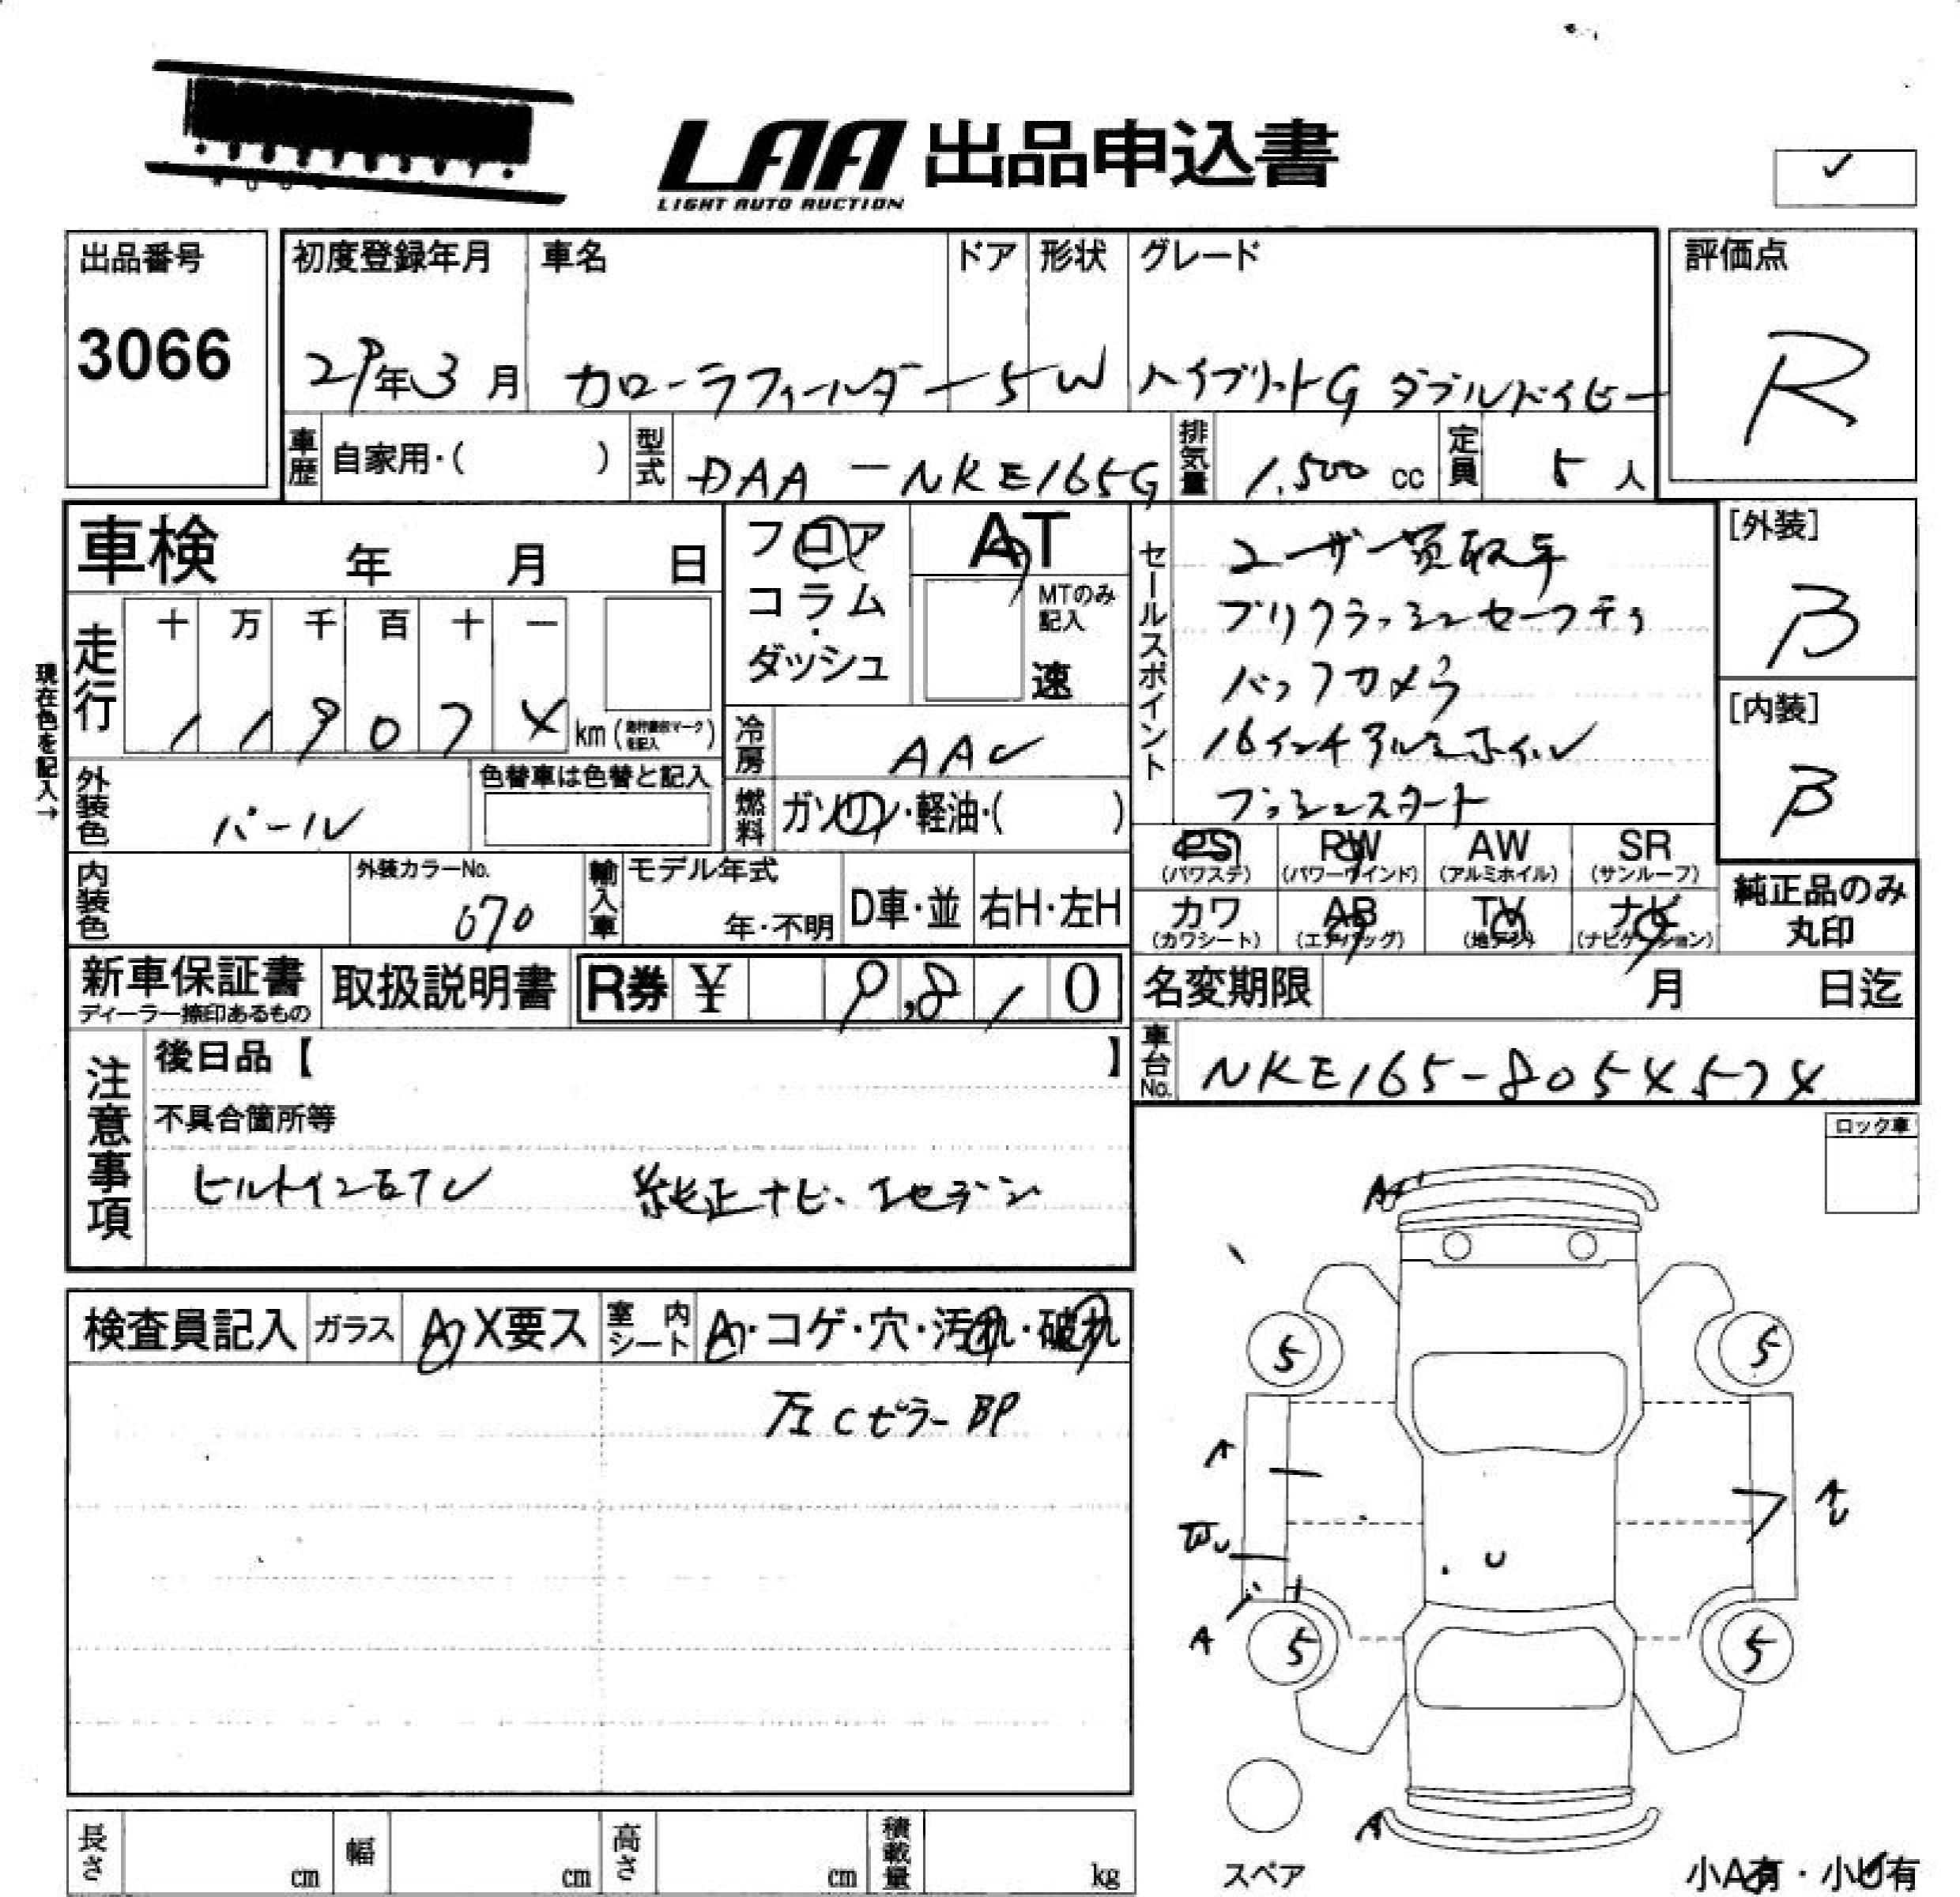 LAA 出品申込書
LIGHT AUTO AUCTION
✓
出品番号
3066
初度登録年月 車名 ドア 形状 グレード
29年3月 カローラフィールダー 5 W ハイブリットG ダブルバイビー
評価点
R
車歴 自家用・( ) 型式 DAA-NKE165G 排気量 1,500 cc 定員 5 人
車検 年 月 日
フロア
コラム
・
ダッシュ
AT
MTのみ
記入
速
走行 十 万 千 百 十 一
119074 km (走行要否マークを記入)
現在色を記入→
冷房 AAC
燃料 ガソリン・軽油・( )
外装色 パール 色替車は色替と記入
内装色 外装カラーNo. 070
輸入車 モデル年式 年・不明 D車・並 右H・左H
セールスポイント
ユーザー買取車
プリクラッシュセーフティ
バックカメラ
16インチアルミホイル
プッシュスタート
[外装]
B
[内装]
B
PS (パワステ) PW (パワーウインド) AW (アルミホイル) SR (サンルーフ)
カワ (カワシート) AB (エアバッグ) TV (地デジ) ナビ (ナビゲーション)
純正品のみ
丸印
新車保証書
ディーラー捺印あるもの
取扱説明書 R券 ¥ 9,810
名変期限 月 日迄
車台No. NKE165-8054574
注意事項
後日品【 】
不具合箇所等
ビルトインETC 純正ナビ、1セデン
ロック車
検査員記入 ガラス A X要ス 室内シート A・コゲ・穴・汚れ・破れ
左Cピラー BP
A
5 5
A
AU
U
A
5 5
A
スペア
小A有・小U有
長さ cm 幅 cm 高さ cm 積載量 kg